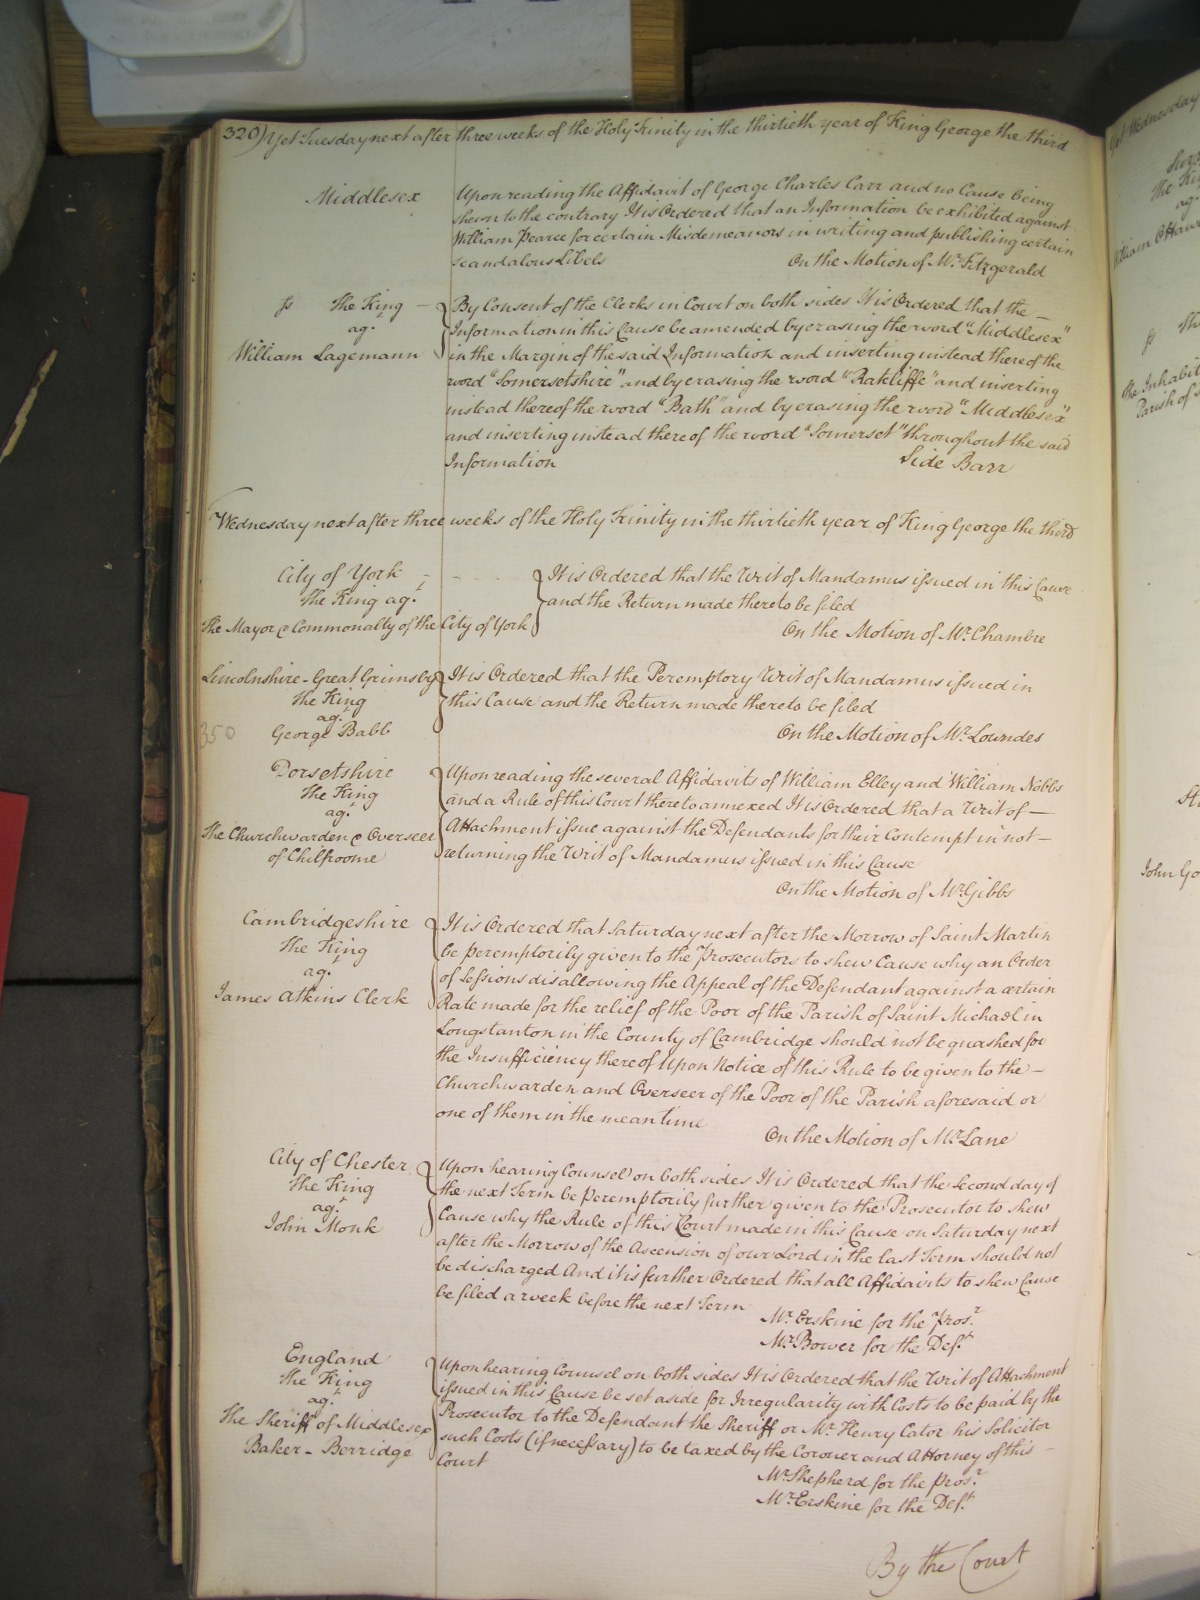 320) Yet Tuesday next after three weeks of the Holy Trinity in the thirtieth year of King George the third
Middlesex
Upon reading the Affidavit of George Charles Carr and no Cause being
shewn to the contrary It is Ordered that an Information be exhibited against
William Pearce for certain Misdemeanors in writing and publishing certain
scandalous Libels On the Motion of Mr. Fitzgerald
fs The King
ag.t
William Lagemann
By Consent of the Clerks in Court on both sides It is Ordered that the —
Information in this Cause be amended by erasing the word "Middlesex"
in the Margin of the said Information and inserting instead thereof the
word "Somersetshire" and by erasing the word "Ratcliffe" and inserting
instead thereof the word "Bath" and by erasing the word "Middlesex"
and inserting instead thereof the word "Somerset" throughout the said
Information Side Barr
Wednesday next after three weeks of the Holy Trinity in the thirtieth year of King George the third
City of York
The King ag.t
The Mayor & Commonalty of the City of York
It is Ordered that the Writ of Mandamus issued in this Cause
and the Return made thereto be filed
On the Motion of Mr. Chambre
Lincolnshire - Great Grimsby
The King
ag.t
George Babb
350
It is Ordered that the Peremptory Writ of Mandamus issued in
this Cause and the Return made thereto be filed
On the Motion of Mr. Lowndes
Dorsetshire
The King
ag.t
The Churchwarden & Overseer
of Chilfroome
Upon reading the several Affidavits of William Elley and William Nobbs
and a Rule of this Court thereto annexed It is Ordered that a Writ of —
Attachment issue against the Defendants for their Contempt in not —
returning the Writ of Mandamus issued in this Cause
On the Motion of Mr. Gibbs
Cambridgeshire
The King
ag.t
James Atkins Clerk
It is Ordered that Saturday next after the Morrow of Saint Martin
be peremptorily given to the Prosecutors to shew Cause why an Order
of Sessions disallowing the Appeal of the Defendant against a certain
Rate made for the relief of the Poor of the Parish of Saint Michael in
Longstanton in the County of Cambridge should not be quashed for
the Insufficiency thereof Upon Notice of this Rule to be given to the —
Churchwarden and Overseer of the Poor of the Parish aforesaid or
one of them in the mean time
On the Motion of Mr. Lane
City of Chester
The King
ag.t
John Monk
Upon hearing Counsel on both sides It is Ordered that the Second day of
the next Term be peremptorily further given to the Prosecutor to shew
Cause why the Rule of this Court made in this Cause on Saturday next
after the Morrow of the Ascension of our Lord in the last Term should not
be discharged And it is further Ordered that all Affidavits to shew Cause
be filed a week before the next Term
Mr. Erskine for the Pros.r
Mr. Bower for the Def.t
England
The King
ag.t
The Sheriff of Middlesex
Baker - Berridge
Upon hearing Counsel on both sides It is Ordered that the Writ of Attachment
issued in this Cause be set aside for Irregularity with Costs to be paid by the
Prosecutor to the Defendant the Sheriff or Mr. Henry Cator his Solicitor
such Costs (if necessary) to be taxed by the Coroner and Attorney of this —
Court
Mr. Shepherd for the Pros.r
Mr. Erskine for the Def.t
By the Court
Yet Wednesday
ag.
fs
the Inhabit
Parish of
John Go